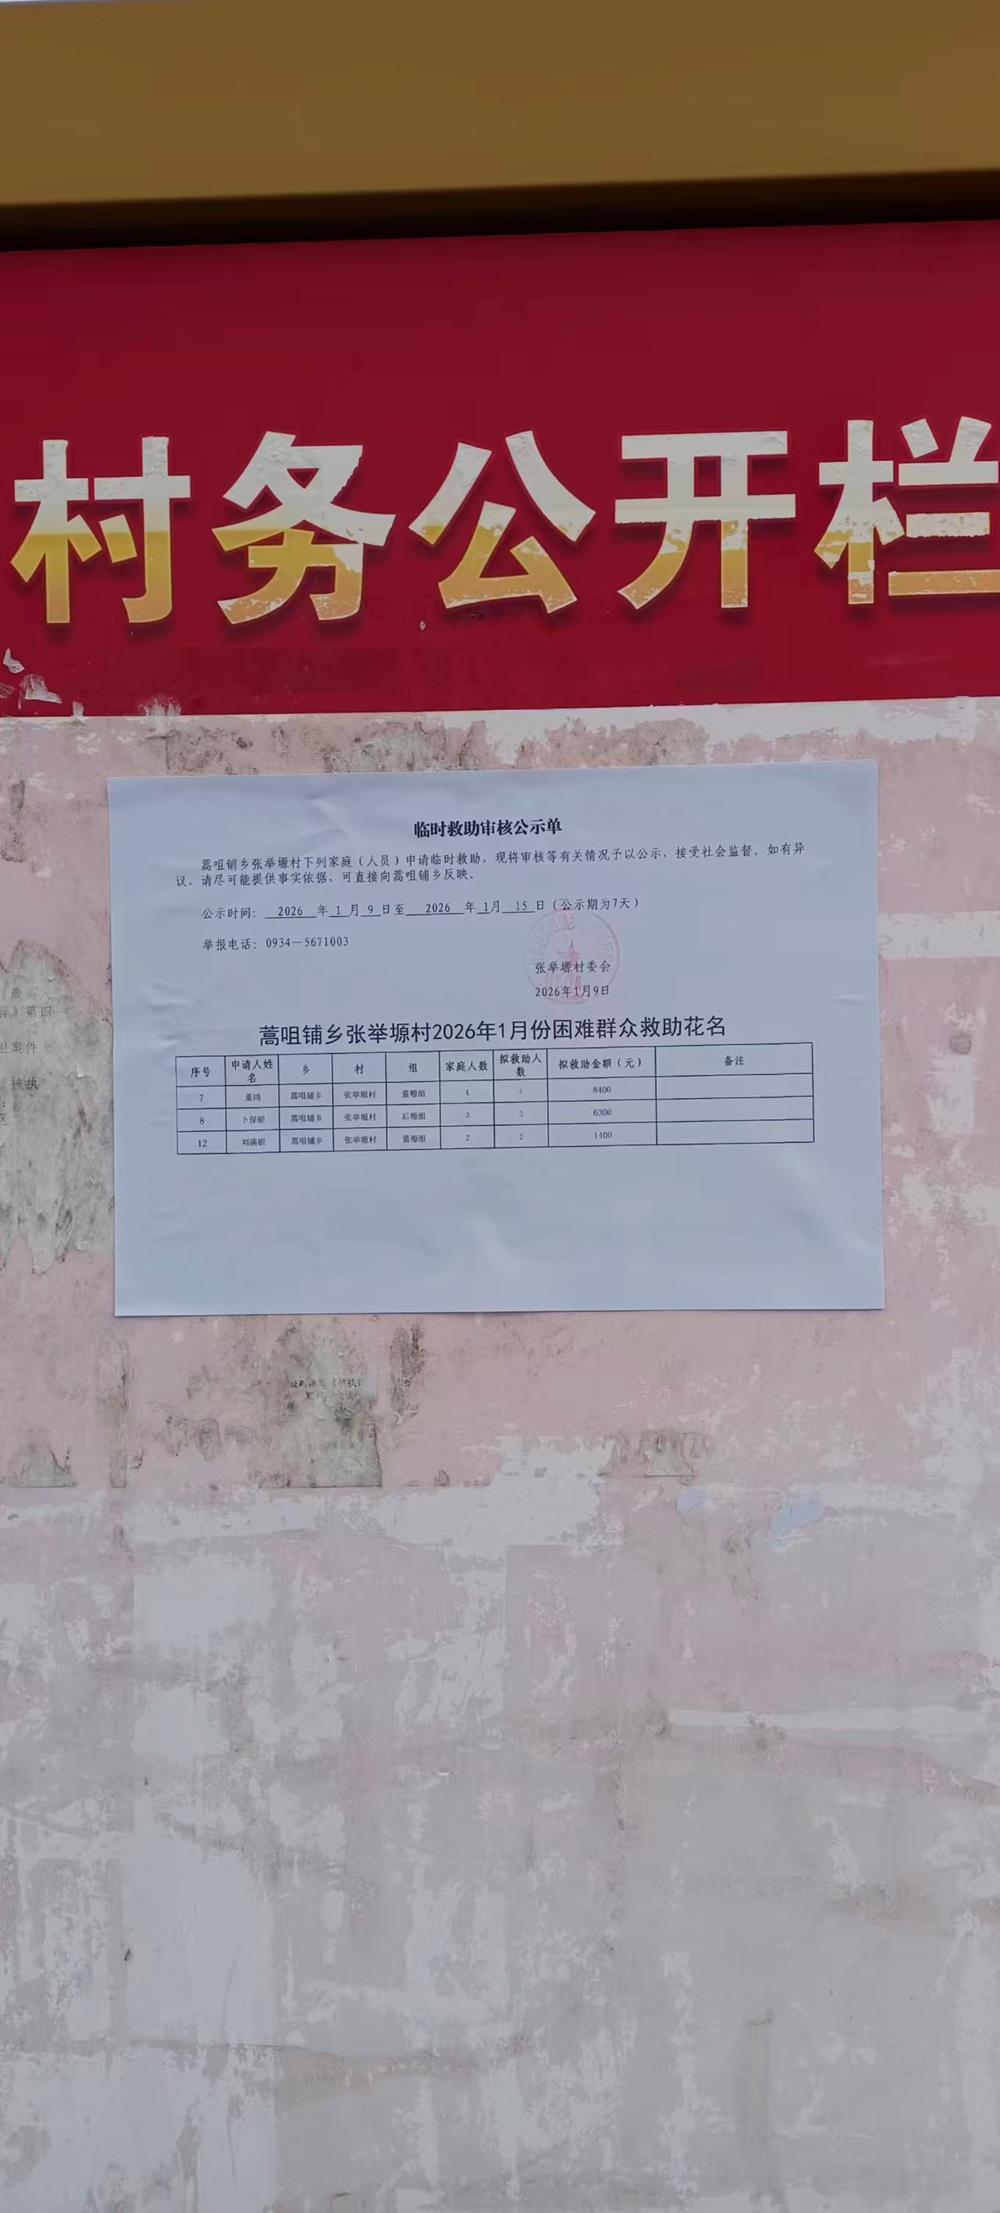 村务公开栏
临时救助审核公示单
蒿咀铺乡张举塬村下列家庭（人员）申请临时救助，现将审核等有关情况予以公示，接受社会监督。如有异
议，请尽可能提供事实依据，可直接向蒿咀铺乡反映。
公示时间： 2026 年 1 月 9 日至 2026 年 1月 15 日（公示期为7天）
举报电话：0934—5671003
张举塬村委会
2026年1月9日
蒿咀铺乡张举塬村2026年1月份困难群众救助花名
序号 申请人姓名 乡 村 组 家庭人数 拟救助人数 拟救助金额（元） 备注
7 董鸿 蒿咀铺乡 张举塬村 董塬组 4 4 8400
8 卜保银 蒿咀铺乡 张举塬村 后塬组 3 3 6300
12 刘满银 蒿咀铺乡 张举塬村 董塬组 2 2 1400
最高
第四
案件
被执